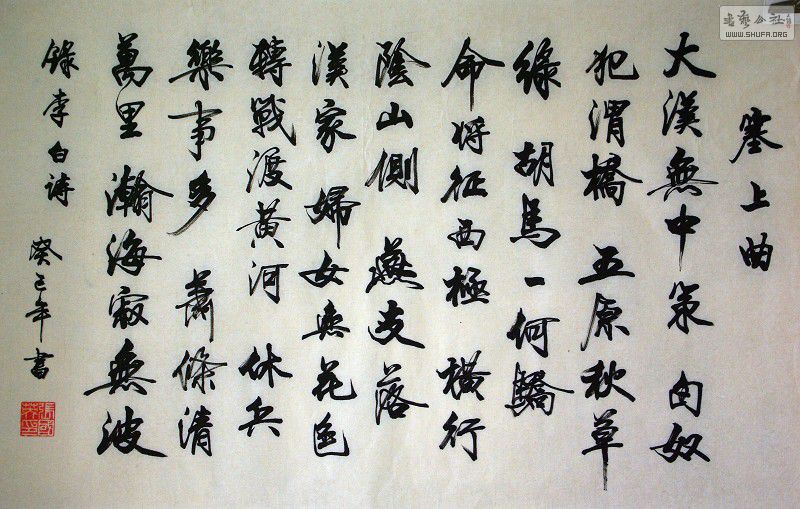 塞上曲
大漢無中策 匈奴
犯渭橋 五原秋草
綠 胡馬一何驕
命將征西極 橫行
陰山側 燕支落
漢家 婦女無花色
轉戰渡黃河 休兵
樂事多 蕭條清
萬里 瀚海寂無波
錄李白詩 癸巳年書
WWW.SHUFA.ORG